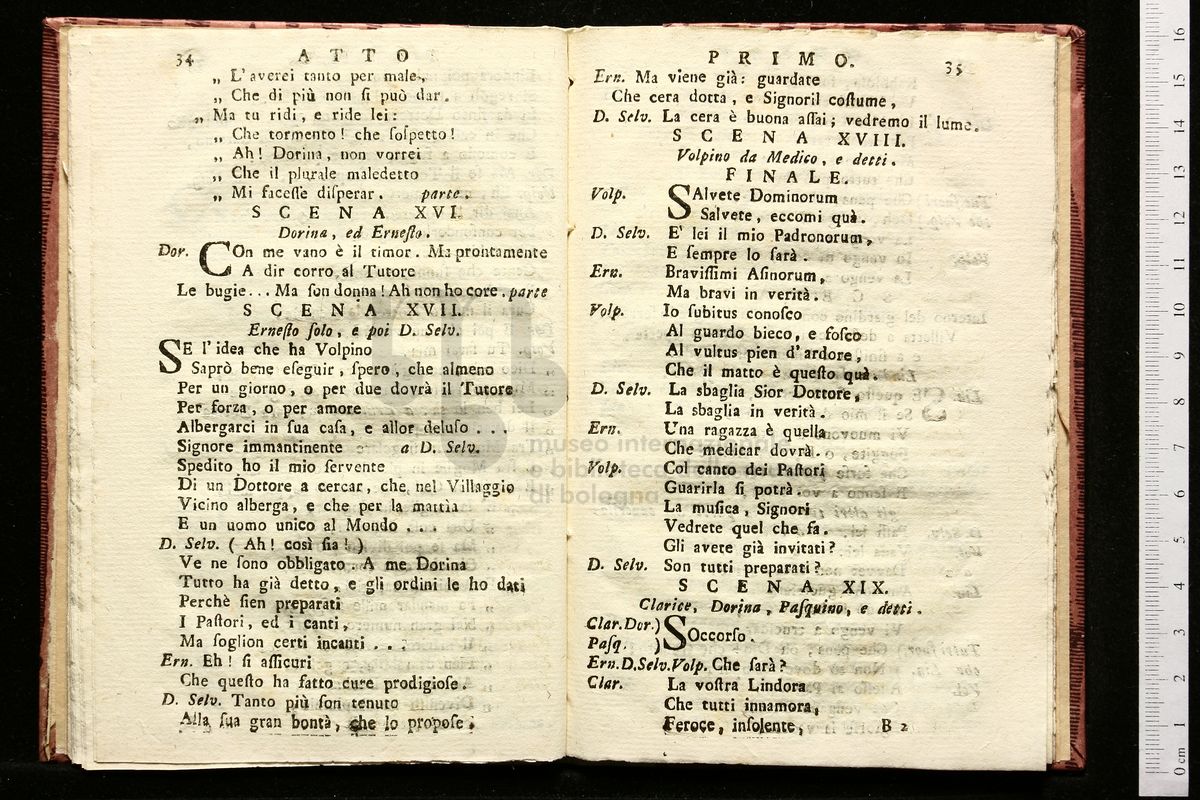 34 A T T O
„ L'averei tanto per male,
„ Che di più non ſi può dar.
„ Ma tu ridi, e ride lei:
„ Che tormento! che ſoſpetto!
„ Ah! Dorina, non vorrei
„ Che il plurale maledetto
„ Mi faceſſe diſperar. parte.
S C E N A XVI.
Dorina, ed Erneſto.
Dor. COn me vano è il timor. Ma prontamente
A dir corro al Tutore
Le bugie... Ma ſon donna! Ah non ho core. parte
S C E N A XVII.
Erneſto ſolo, e poi D. Selv.
SE l'idea che ha Volpino
Saprò bene eſeguir, ſpero, che almeno
Per un giorno, o per due dovrà il Tutore
Per forza, o per amore
Albergarci in ſua caſa, e allor deluſo . . .
Signore immantinente a D. Selv.
Spedito ho il mio ſervente
Di un Dottore a cercar, che nel Villaggio
Vicino alberga, e che per la mattìa
E un uomo unico al Mondo .
D. Selv. ( Ah! così ſia! )
Ve ne ſono obbligato. A me Dorina
Tutto ha già detto, e gli ordini le ho dati
Perchè ſien preparati
I Paſtori, ed i canti,
Ma ſoglion certi incanti . . .
Ern. Eh! ſi aſſicuri
Che queſto ha fatto cure prodigioſe.
D. Selv. Tanto più ſon tenuto
Alla ſua gran bontà, che lo propoſe.
P R I M O. 35
Ern. Ma viene già: guardate
Che cera dotta, e Signoril coſtume,
D. Selv. La cera è buona aſſai; vedremo il lume.
S C E N A XVIII.
Volpino da Medico, e detti.
F I N A L E.
Volp. SAlvete Dominorum
Salvete, eccomi quà.
D. Selv. E' lei il mio Padronorum,
E ſempre lo ſarà.
Ern. Braviſſimi Aſinorum,
Ma bravi in verità.
Volp. Io ſubitus conoſco
Al guardo bieco, e foſco
Al vultus pien d'ardore,
Che il matto è queſto quà.
D. Selv. La sbaglia Sior Dottore,
La sbaglia in verità.
Ern. Una ragazza è quella
Che medicar dovrà.
Volp. Col canto dei Paſtori
Guarirla ſi potrà.
La muſica, Signori
Vedrete quel che fa.
Gli avete già invitati?
D. Selv. Son tutti preparati?
S C E N A XIX.
Clarice, Dorina, Paſquino, e detti.
Clar.Dor.) SOccorſo.
Paſq. )
Ern.D.Selv.Volp. Che ſarà?
Clar. La voſtra Lindora
Che tutti innamora,
Feroce, inſolente,
B 2
museo internazionale
e biblioteca
di bologna
0 cm 1 2 3 4 5 6 7 8 9 10 11 12 13 14 15 16